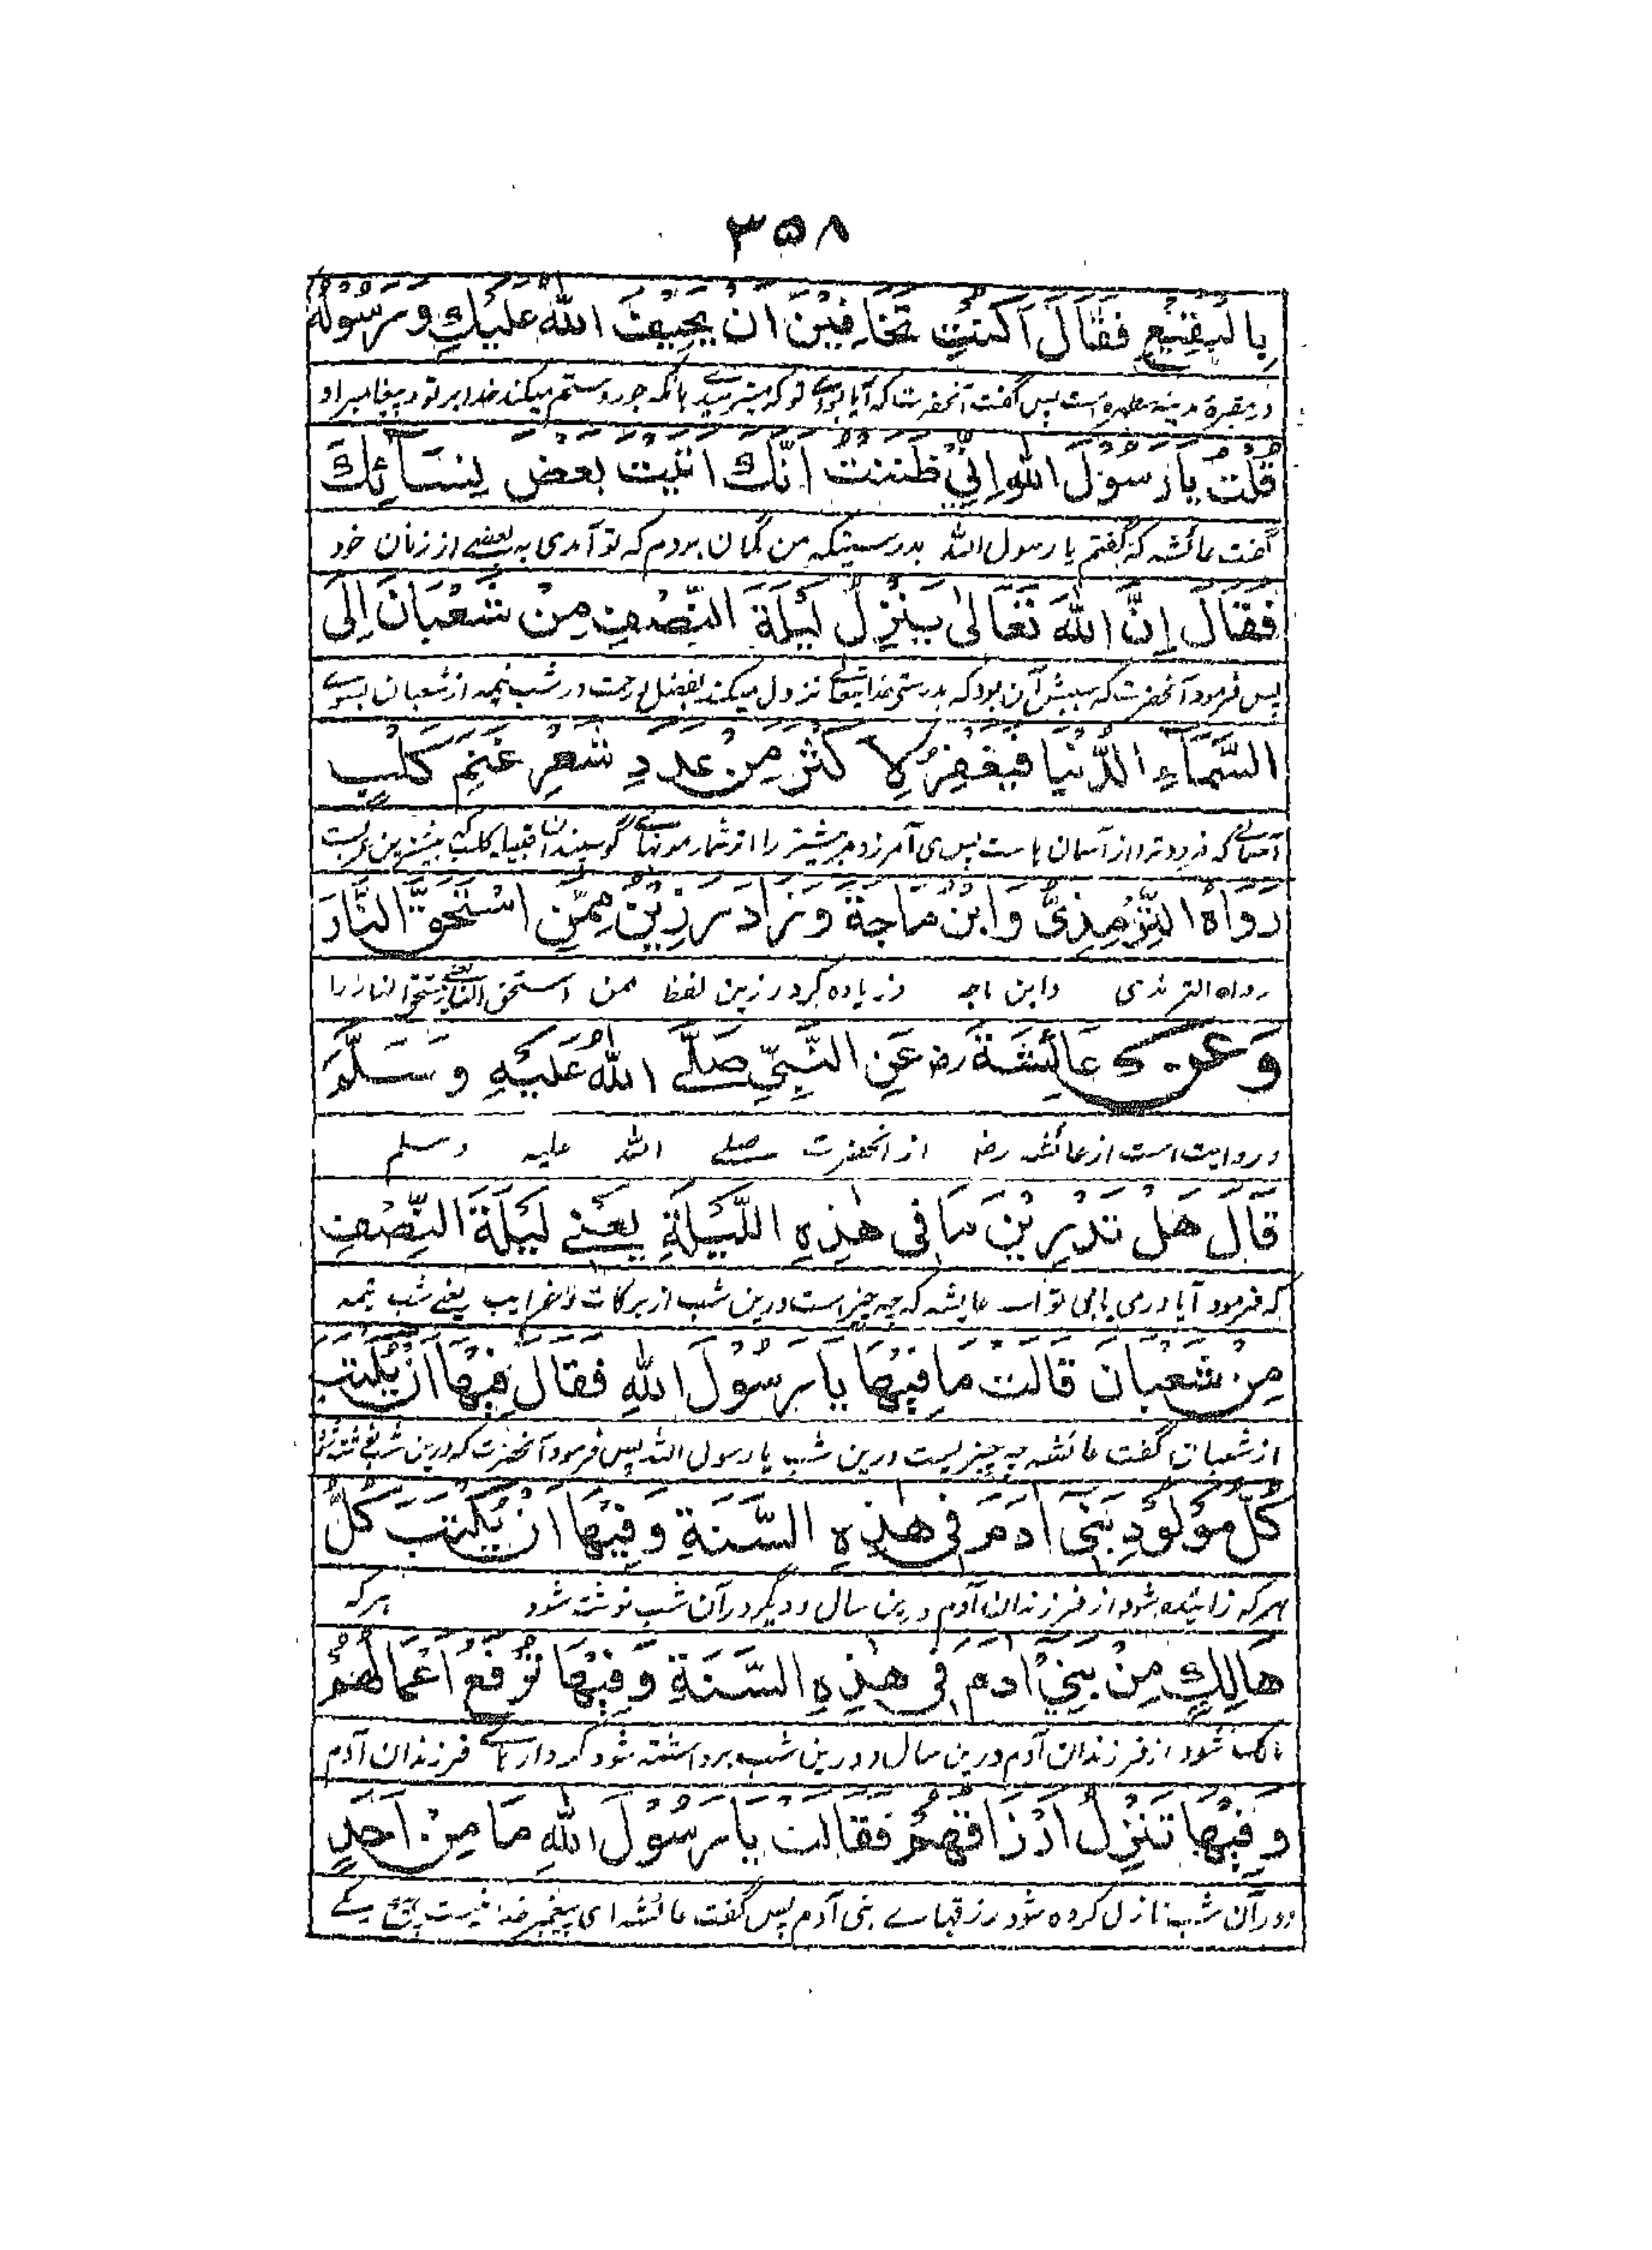 ۳۵۸
بِالْبَقِيْعِ فَقَالَ اَكُنْتِ تَخَافِيْنَ اَنْ يَحِيْفَ اللهُ عَلَيْكِ وَرَسُوْلُهٗ
در مقبرهٔ مدینه مطهره است پس گفت آنحضرت که آیا بودے تو که میترسیدے بآنکه جور و ستم میکند خدا بر تو و پیغامبر او
قُلْتُ يَا رَسُوْلَ اللهِ اِنِّيْ ظَنَنْتُ اَنَّكَ اَتَيْتَ بَعْضَ نِسَآئِكَ
گفت عائشه که گفتم یا رسول الله بدرستیکه من گمان بردم که تو آمدی به بعضے از زنان خود
فَقَالَ اِنَّ اللهَ تَعَالٰى يَنْزِلُ لَيْلَةَ النِّصْفِ مِنْ شَعْبَانَ اِلَى
پس فرمود آنحضرت که سببش آن بود که بدرستی خدایتعالے نزول میکند بفضل و رحمت در شب نیمه از شعبان بسوے
السَّمَآءِ الدُّنْيَا فَيَغْفِرُ لِاَكْثَرَ مِنْ عَدَدِ شَعْرِ غَنَمِ كَلْبٍ
آسمانے که فرودتر از آسمان هاست پس می آمرزد مر بیشتر را از شمار مویهاے گوسپندان قبیله کلب که بیشترین عرب است
رَوَاهُ التِّرْمِذِيُّ وَابْنُ مَاجَةَ وَزَادَ رَزِيْنٌ مِمَّنِ اسْتَحَقَّ النَّارَ
رواه الترمذی وابن ماجه و زیاده کرد رزین لفظ ممن استحق النار یعنے مستحق النار را
وَعَنْ عَائِشَةَ رض عَنِ النَّبِيِّ صَلَّے اللهُ عَلَيْهِ وَسَلَّمَ
و روایت است از عائشه رض از آنحضرت صلے الله علیه وسلم
قَالَ هَلْ تَدْرِيْنَ مَا فِى هٰذِهِ اللَّيْلَةِ يَعْنِے لَيْلَةَ النِّصْفِ
که فرمود آیا در می یابی تو اے عایشه که چه چیز است درین شب از برکات و غرایب یعنے شب نیمه
مِنْ شَعْبَانَ قَالَتْ مَا فِيْهَا يَا رَسُوْلَ اللهِ فَقَالَ فِيْهَا اَنْ يُكْتَبَ
از شعبان گفت عائشه چه چیز یست درین شب یا رسول الله پس فرمود آنحضرت که درین شب
كُلُّ مَوْلُوْدِ بَنِيْ اٰدَمَ فِى هٰذِهِ السَّنَةِ وَفِيْهَا اَنْ يُكْتَبَ كُلُّ
هر که زائیده شود از فرزندان آدم درین سال و دیگر در آن شب نوشته شود هر که
هَالِكٍ مِنْ بَنِيْ اٰدَمَ فِى هٰذِهِ السَّنَةِ وَفِيْهَا تُرْفَعُ اَعْمَالُهُمْ
هالک شود از فرزندان آدم درین سال و درین شب برداشته شود کردار هاے فرزندان آدم
وَفِيْهَا تَنْزِلُ اَرْزَاقُهُمْ فَقَالَتْ يَا رَسُوْلَ اللهِ مَا مِنْ اَحَدٍ
و در آن شب نازل کرده شود رزقهاے بنی آدم پس گفت عائشه ای پیغمبر خدا نیست هیچ یکے